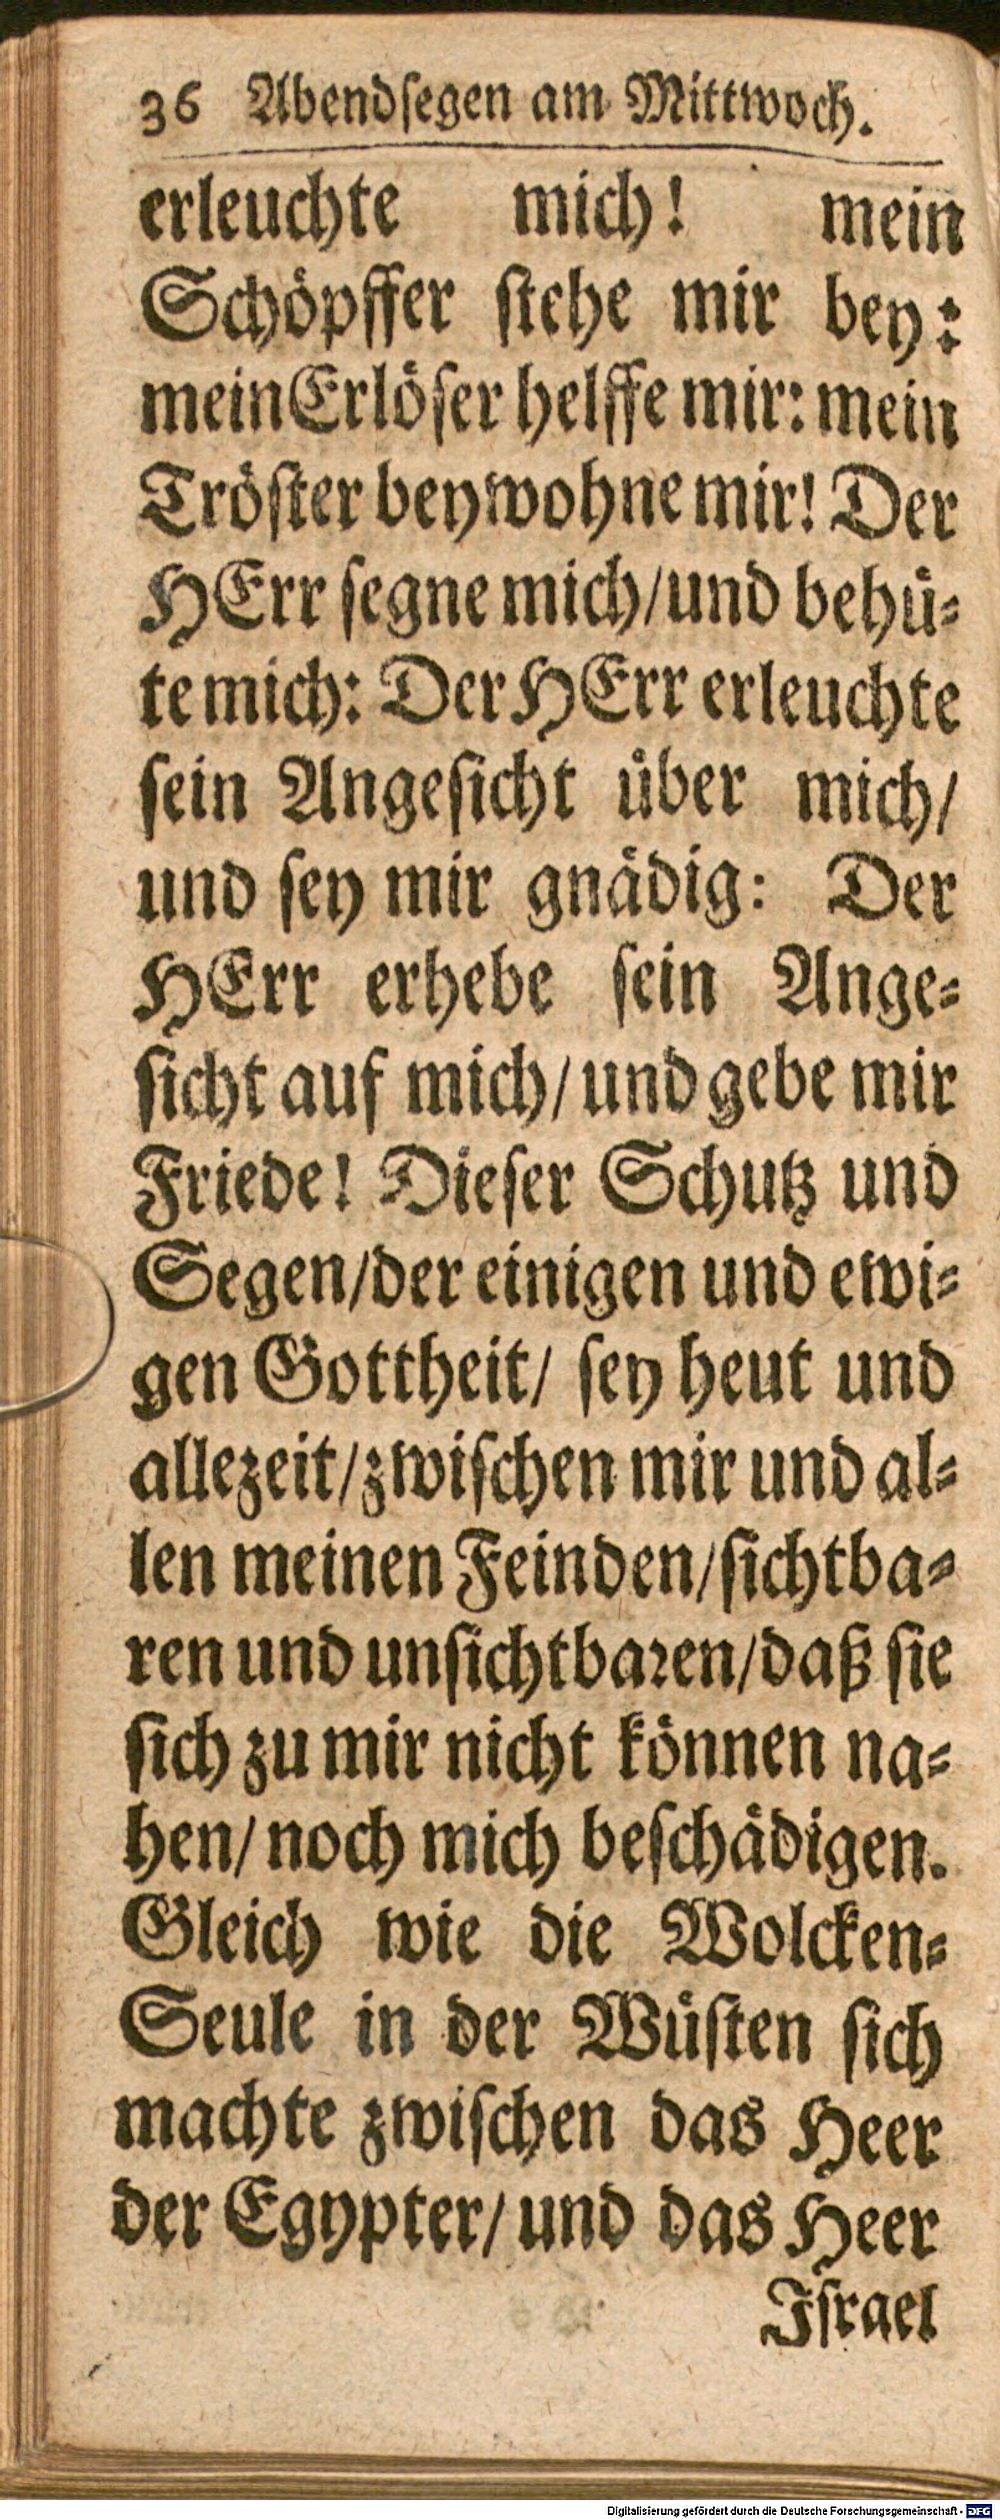 36 Abendſegen am Mittwoch.
erleuchte mich! mein
Schöpffer ſtehe mir bey:
mein Erlöſer helffe mir: mein
Tröſter beywohne mir! Der
HErr ſegne mich/und behü⸗
te mich: Der HErr erleuchte
ſein Angeſicht über mich/
und ſey mir gnädig: Der
HErr erhebe ſein Ange⸗
ſicht auf mich/und gebe mir
Friede! Dieſer Schutz und
Segen/der einigen und ewi⸗
gen Gottheit/ ſey heut und
allezeit/zwiſchen mir und al⸗
len meinen Feinden/ſichtba⸗
ren und unſichtbaꝛen/daß ſie
ſich zu mir nicht können na⸗
hen/noch mich beſchädigen.
Gleich wie die Wolcken⸗
Seule in der Wüſten ſich
machte zwiſchen das Heer
der Egypter/und das Heer
Iſrael
Digitalisierung gefördert durch die Deutsche Forschungsgemeinschaft - DFG